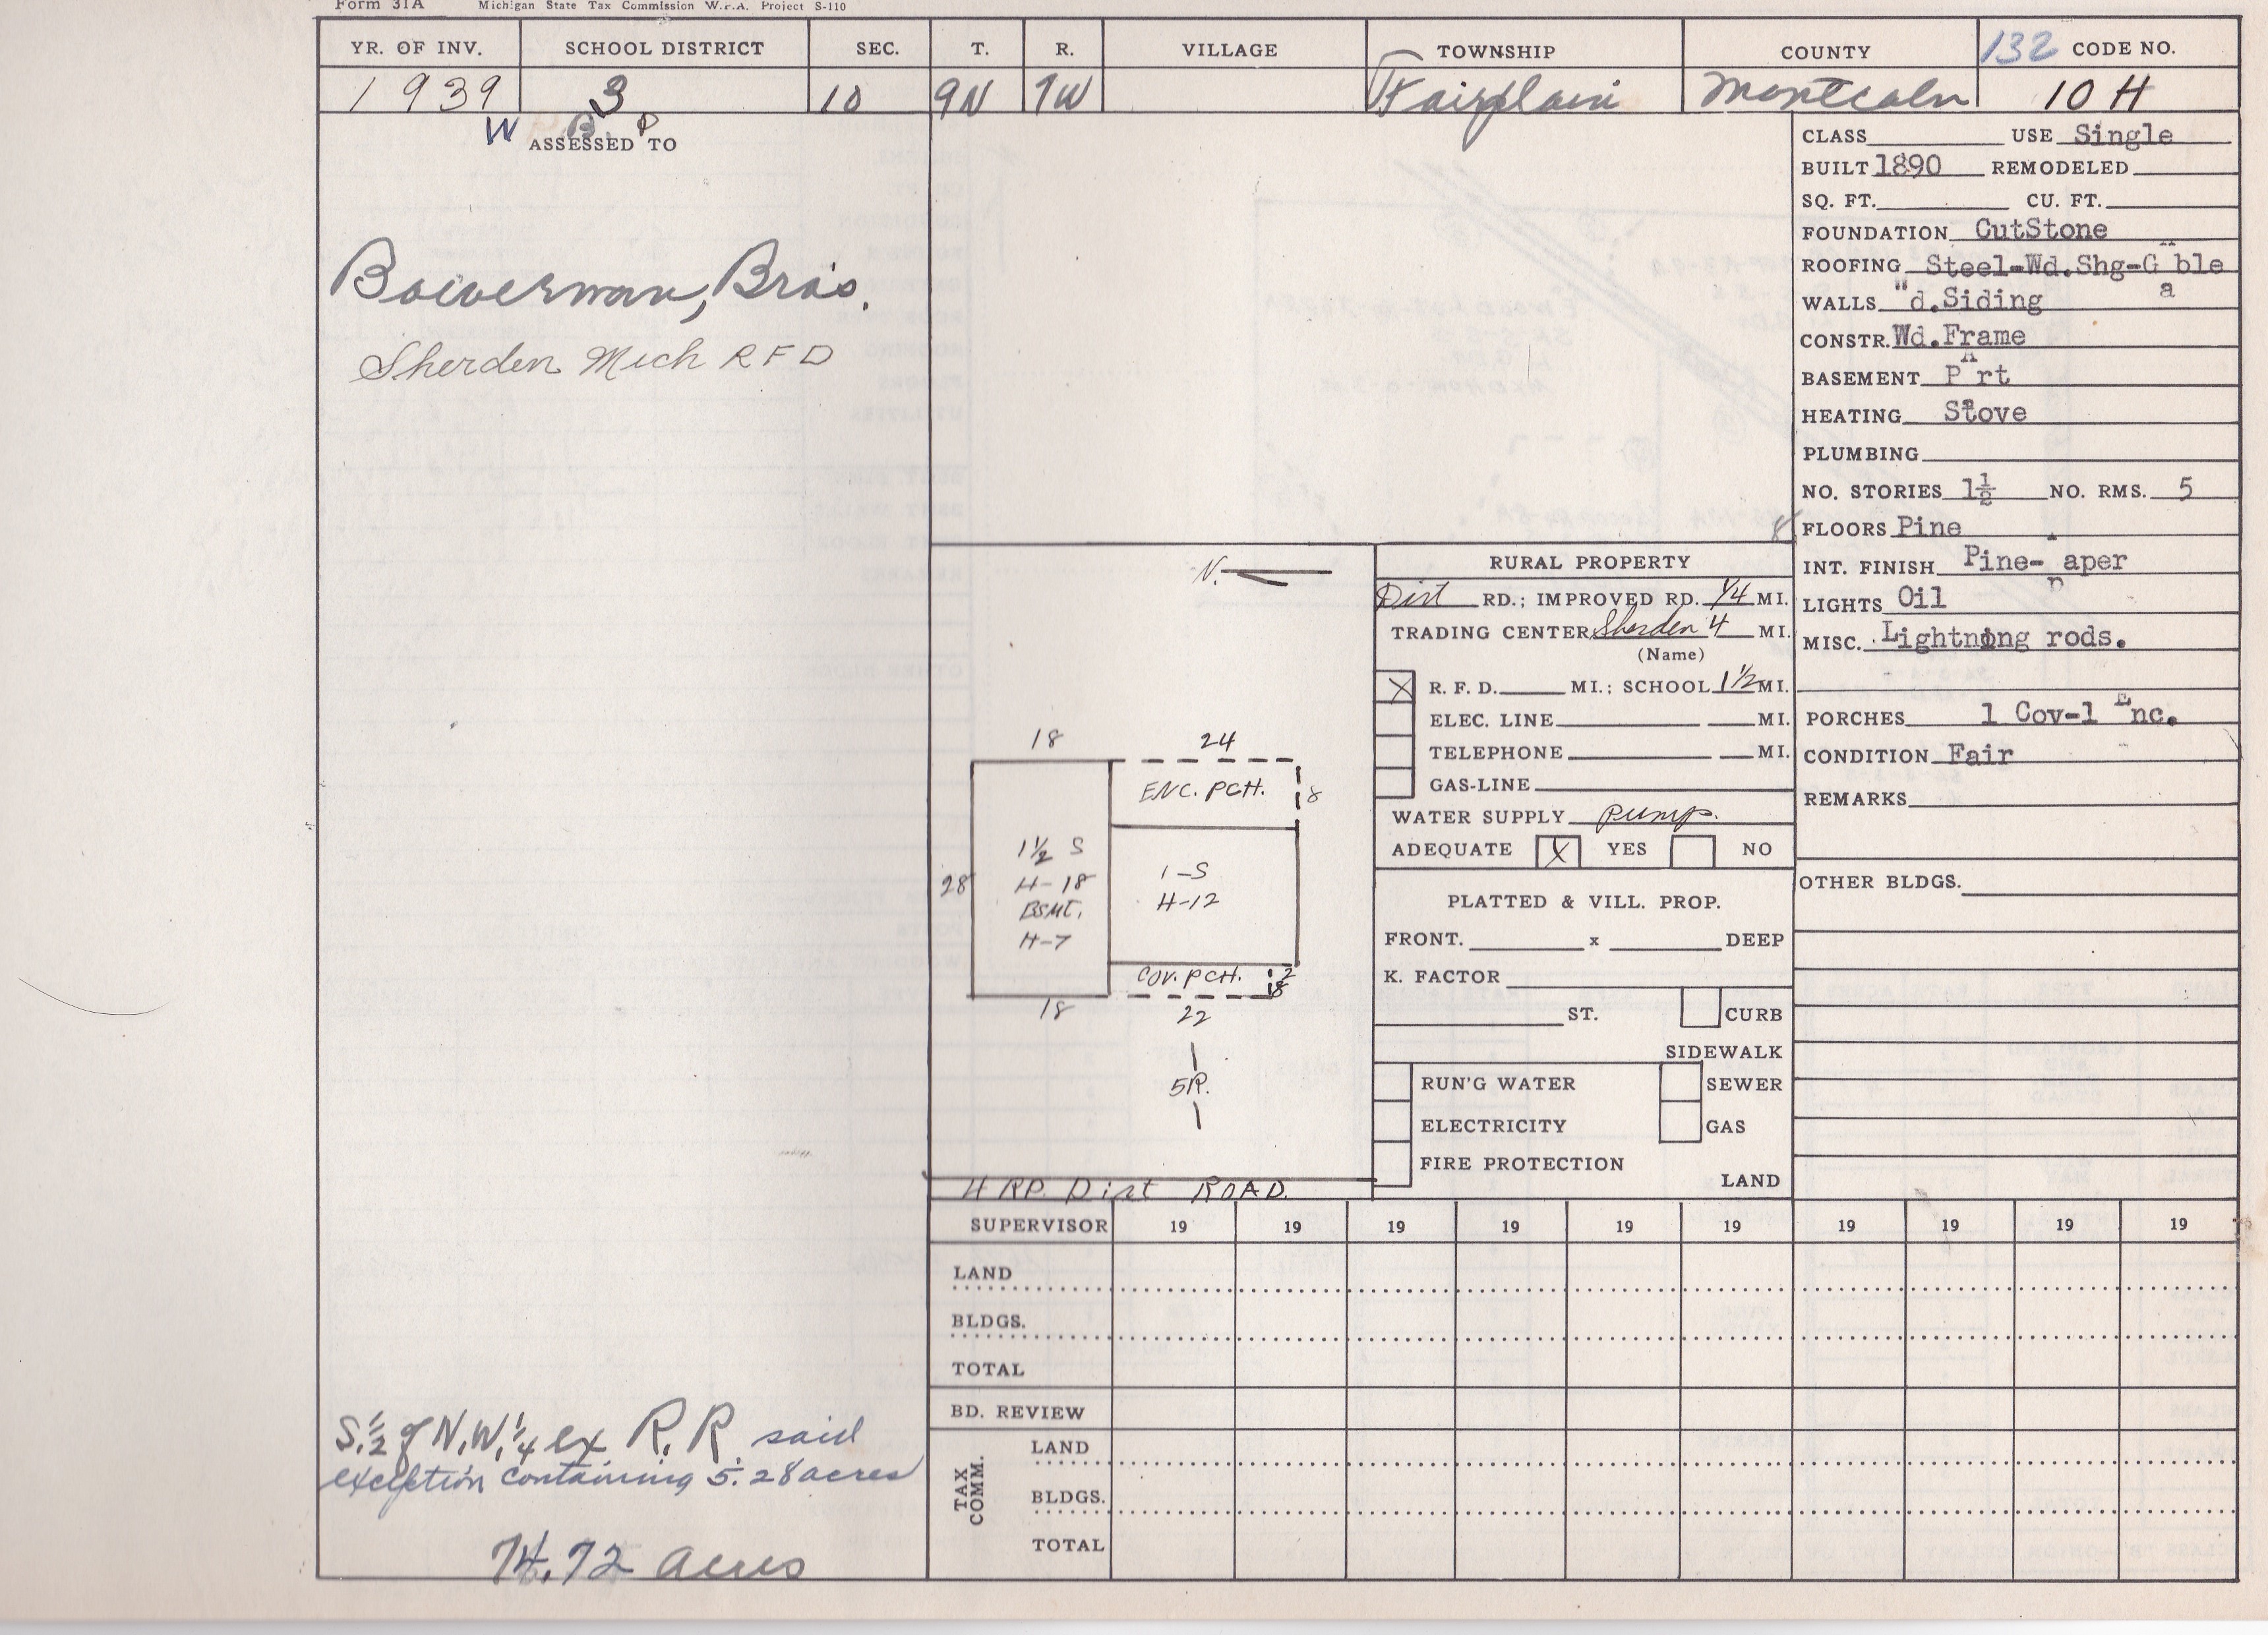 Form 31A Michigan State Tax Commission W.P.A. Project S-110
YR. OF INV. SCHOOL DISTRICT SEC. T. R. VILLAGE TOWNSHIP COUNTY 132 CODE NO.
1939 3 10 9N 7W Fairplain Montcalm 10 H
W B. P
ASSESSED TO
Bowerman, Bros.
Sherden Mich RFD
S. 1/2 of N.W. 1/4 ex R.R. said
exception containing 5.28 acres
74.72 acres
N.
18 24
ENC. PCH. 8
28
1½ S
H-18
BSMT.
H-7
1-S
H-12
COV. PCH.
18 22
5R.
4 RP Dirt ROAD.
RURAL PROPERTY
Dirt RD.; IMPROVED RD. 1/4 MI.
TRADING CENTER Sherden 4 MI.
(Name)
X R. F. D. MI.; SCHOOL 1½ MI.
ELEC. LINE MI.
TELEPHONE MI.
GAS-LINE
WATER SUPPLY pump.
ADEQUATE X YES NO
PLATTED & VILL. PROP.
FRONT. x DEEP
K. FACTOR
ST. CURB
SIDEWALK
RUN'G WATER SEWER
ELECTRICITY GAS
FIRE PROTECTION
LAND
CLASS USE Single
BUILT 1890 REMODELED
SQ. FT. CU. FT.
FOUNDATION CutStone
ROOFING Steel-Wd.Shg-Gable
WALLS Wd.Siding
CONSTR. Wd.Frame
BASEMENT Part
HEATING Stove
PLUMBING
NO. STORIES 1½ NO. RMS. 5
FLOORS Pine
INT. FINISH Pine-Paper
LIGHTS Oil
MISC. Lightning rods.
PORCHES 1 Cov-1 Enc.
CONDITION Fair
REMARKS
OTHER BLDGS.
SUPERVISOR 19 19 19 19 19 19 19 19 19 19
LAND
BLDGS.
TOTAL
BD. REVIEW
TAX COMM.
LAND
BLDGS.
TOTAL